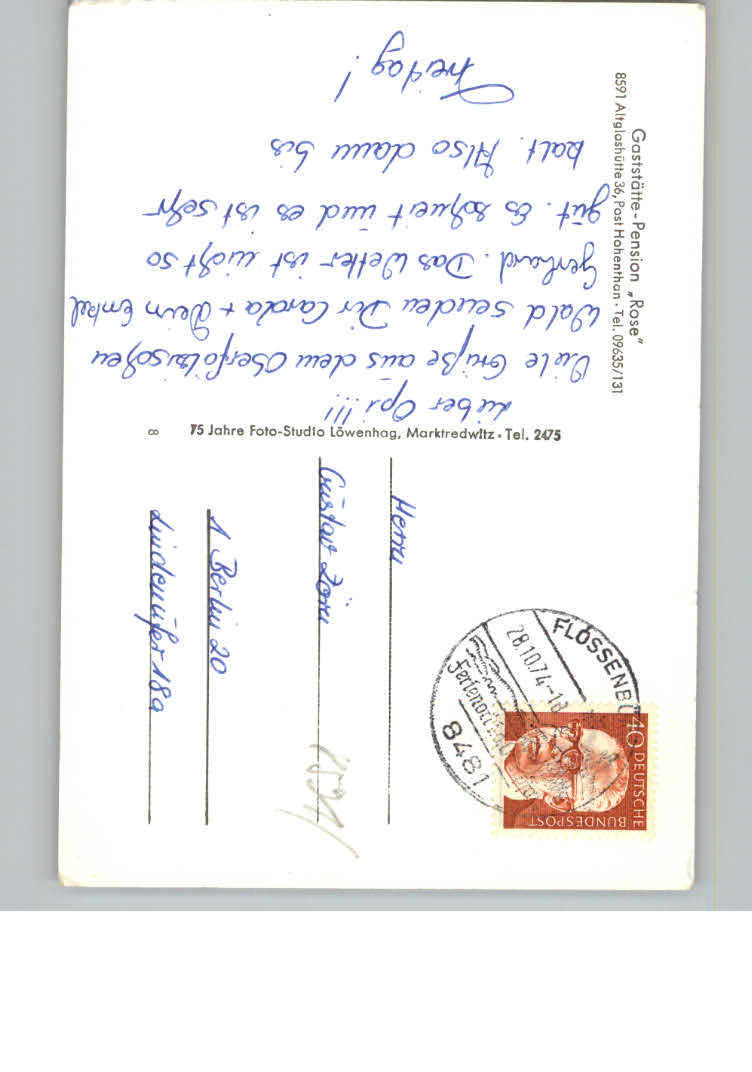 Gaststätte-Pension „Rose"
8591 Altglashütte 36, Post Hohenthan · Tel. 09635/131
Lieber Opi!!!
Viele Grüße aus dem Oberfälzischen
Wald senden Dir Carola + Dein Enkel
Gerhard. Das Wetter ist nicht so
gut. Es schneit und es ist sehr
kalt. Also dann bis
Freitag!
75 Jahre Foto-Studio Löwenhag, Marktredwitz · Tel. 2475
8
Herrn
Gustav
1 Berlin 20
Lindenufer 18a
FLOSSENBÜ
28.10.74-18
Ferienort
8481
40 DEUTSCHE
BUNDESPOST